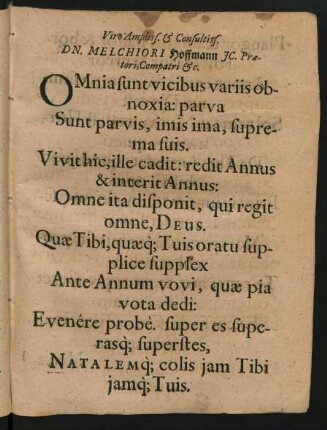 Viro Ampliss. & Consultiss.
DN. MELCHIORI Hoffmann JC. Præ-
tori, Compatri &c.
OMnia sunt vicibus variis ob-
noxia: parva
Sunt parvis, imis ima, supre-
ma suis.
Vivit hic, ille cadit: redit Annus
& interit Annus:
Omne ita disponit, qui regit
omne, DEUS.
Quæ Tibi, quæq; Tuis oratu sup-
plice supplex
Ante Annum vovi, quæ pia
vota dedi:
Evenêre probè. super es supe-
rasq; superstes,
NATALEMq; colis jam Tibi
jamq; Tuis.